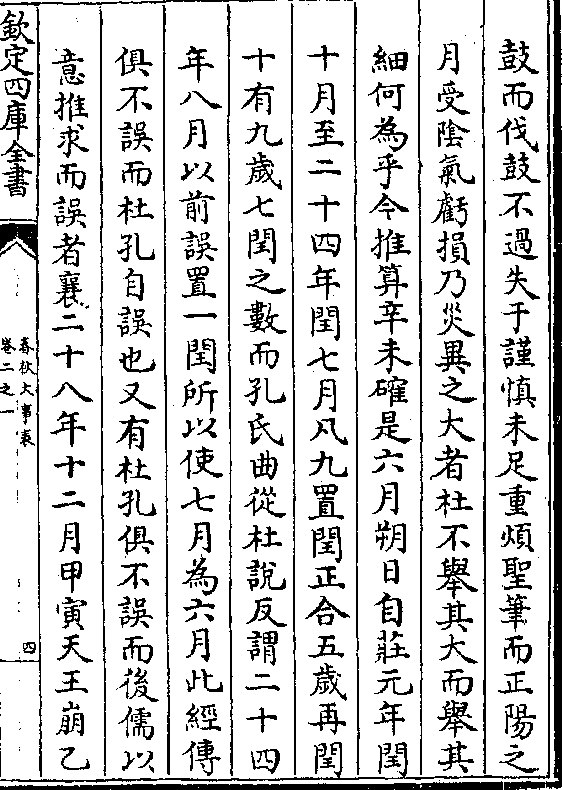 鼓而伐鼓不過失于謹慎未足重煩聖筆而正陽之
月受陰氣虧損乃災異之大者杜不舉其大而舉其
細何為乎今推算辛未確是六月朔日自莊元年閏
十月至二十四年閏七月凡九置閏正合五歲再閏
十有九歲七閏之數而孔氏曲從杜說反謂二十四
年八月以前誤置一閏所以使七月為六月此經傳
俱不誤而杜孔自誤也又有杜孔俱不誤而後儒以
意推求而誤者襄二十八年十二月甲寅天王崩乙
欽定四庫全書
春秋大事表
卷二之一
四